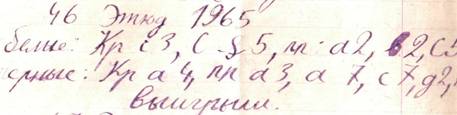 46 Этюд 1965
белые: Кр c3, С g5, пп: a2, b2, c5
ерные: Кр a4, пп a3, a7, c7, g2,
выигрыш.